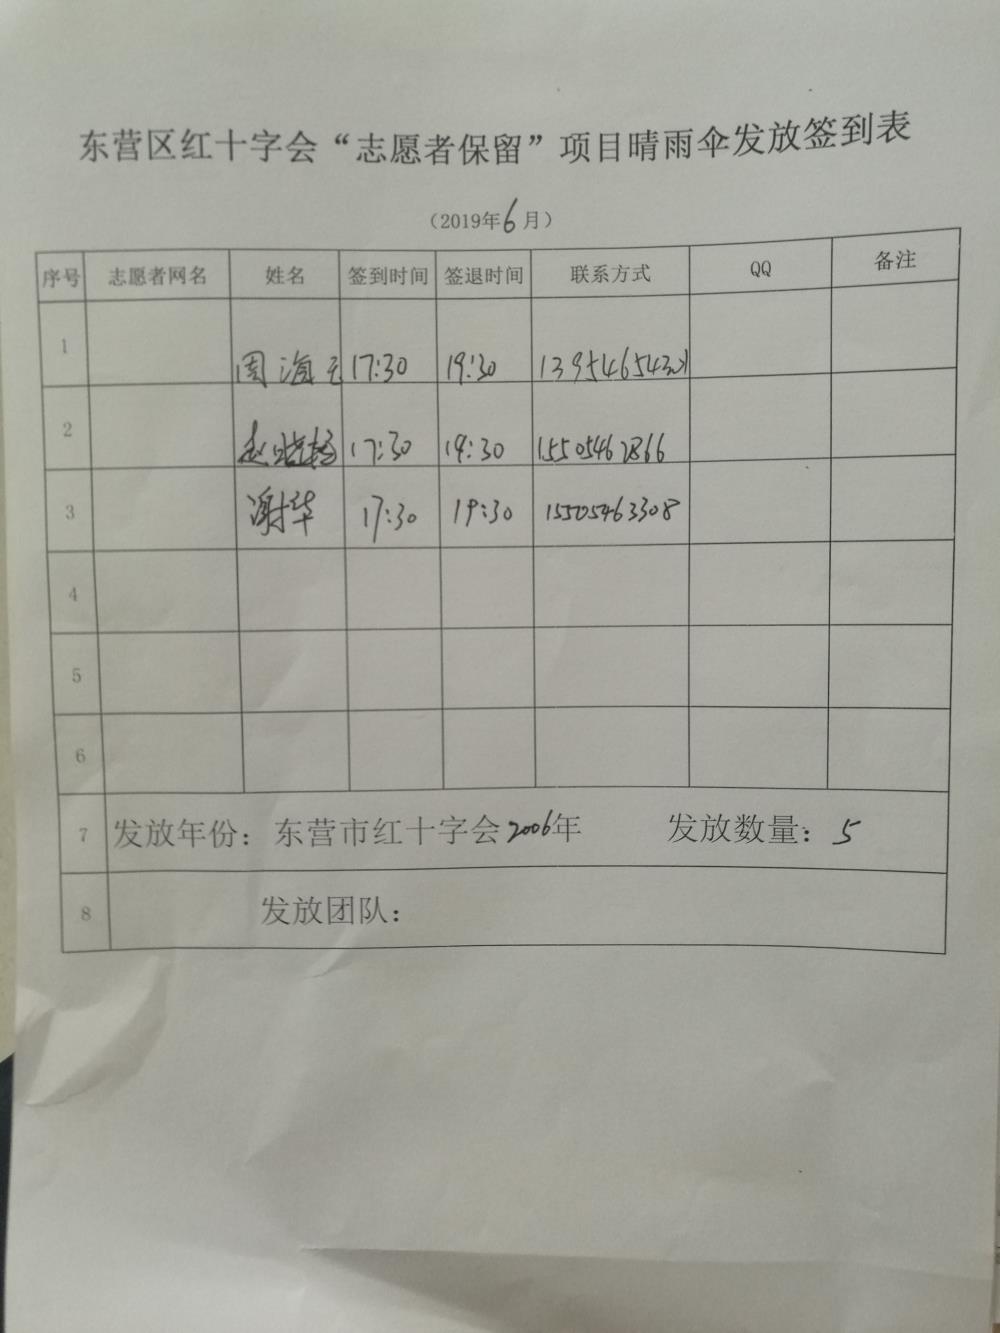 东营区红十字会“志愿者保留”项目晴雨伞发放签到表
（2019年6月）
序号 志愿者网名 姓名 签到时间 签退时间 联系方式 QQ 备注
1 周海 17:30 19:30
2 赵晓杨 17:30 19:30 15505462866
3 谢华 17:30 19:30 15505463308
4
5
6
7 发放年份：东营市红十字会2006年 发放数量：5
8 发放团队：